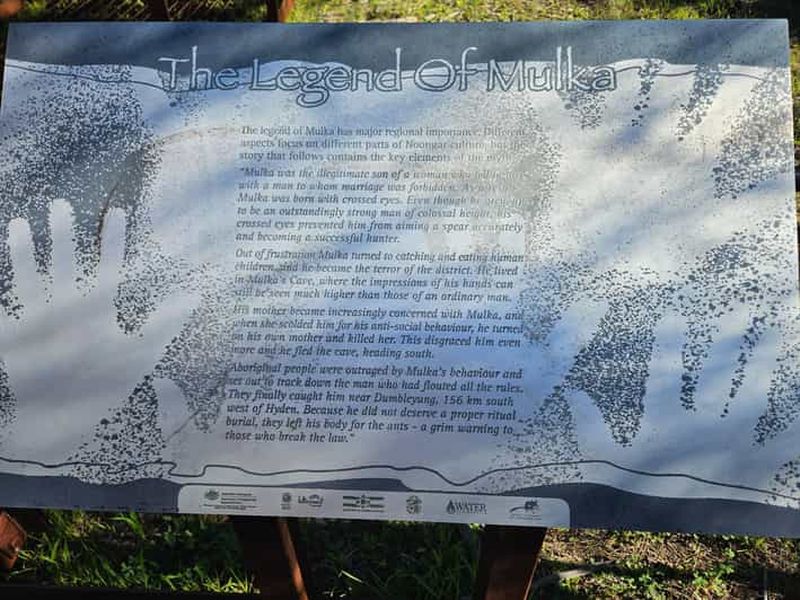 The Legend Of Mulka
The legend of Mulka has major regional importance. Different
aspects focus on different parts of Noongar culture, but the
story that follows contains the key elements of the myth.
"Mulka was the illegitimate son of a woman who fell in love
with a man to whom marriage was forbidden. As a
Mulka was born with crossed eyes. Even though he grew up
to be an outstandingly strong man of colossal height, his
crossed eyes prevented him from aiming a spear accurately
and becoming a successful hunter.
Out of frustration Mulka turned to catching and eating human
children, and he became the terror of the district. He lived
in Mulka's Cave, where the impressions of his hands can
still be seen much higher than those of an ordinary man.
His mother became increasingly concerned with Mulka, and
when she scolded him for his anti-social behaviour, he turned
on his own mother and killed her. This disgraced him even
more and he fled the cave, heading south.
Aboriginal people were outraged by Mulka's behaviour and
set out to track down the man who had flouted all the rules.
They finally caught him near Dumbleyung, 156 km south
west of Hyden. Because he did not deserve a proper ritual
burial, they left his body for the ants – a grim warning to
those who break the law."
WATER